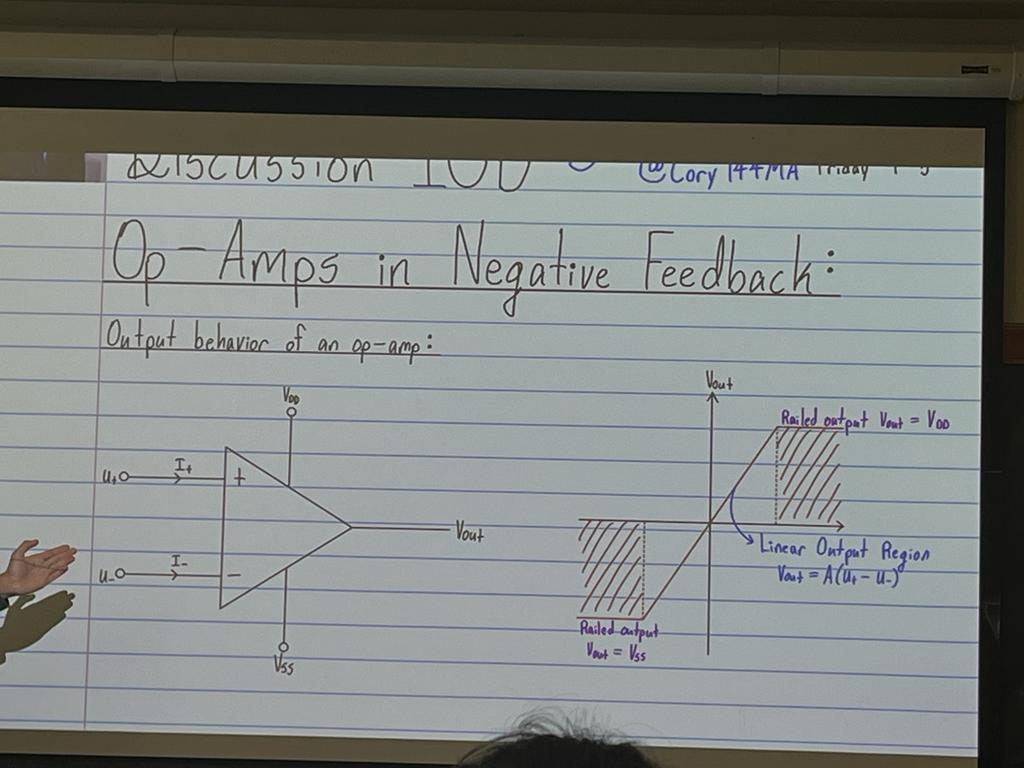 Discussion 10D @Cory 144MA Friday
Op-Amps in Negative Feedback:
Output behavior of an op-amp:
VDD
u+
I+
+
u-
I-
-
Vout
VSS
Vout
Railed output Vout = VDD
Linear Output Region
Vout = A(u+ - u-)
Railed output
Vout = VSS